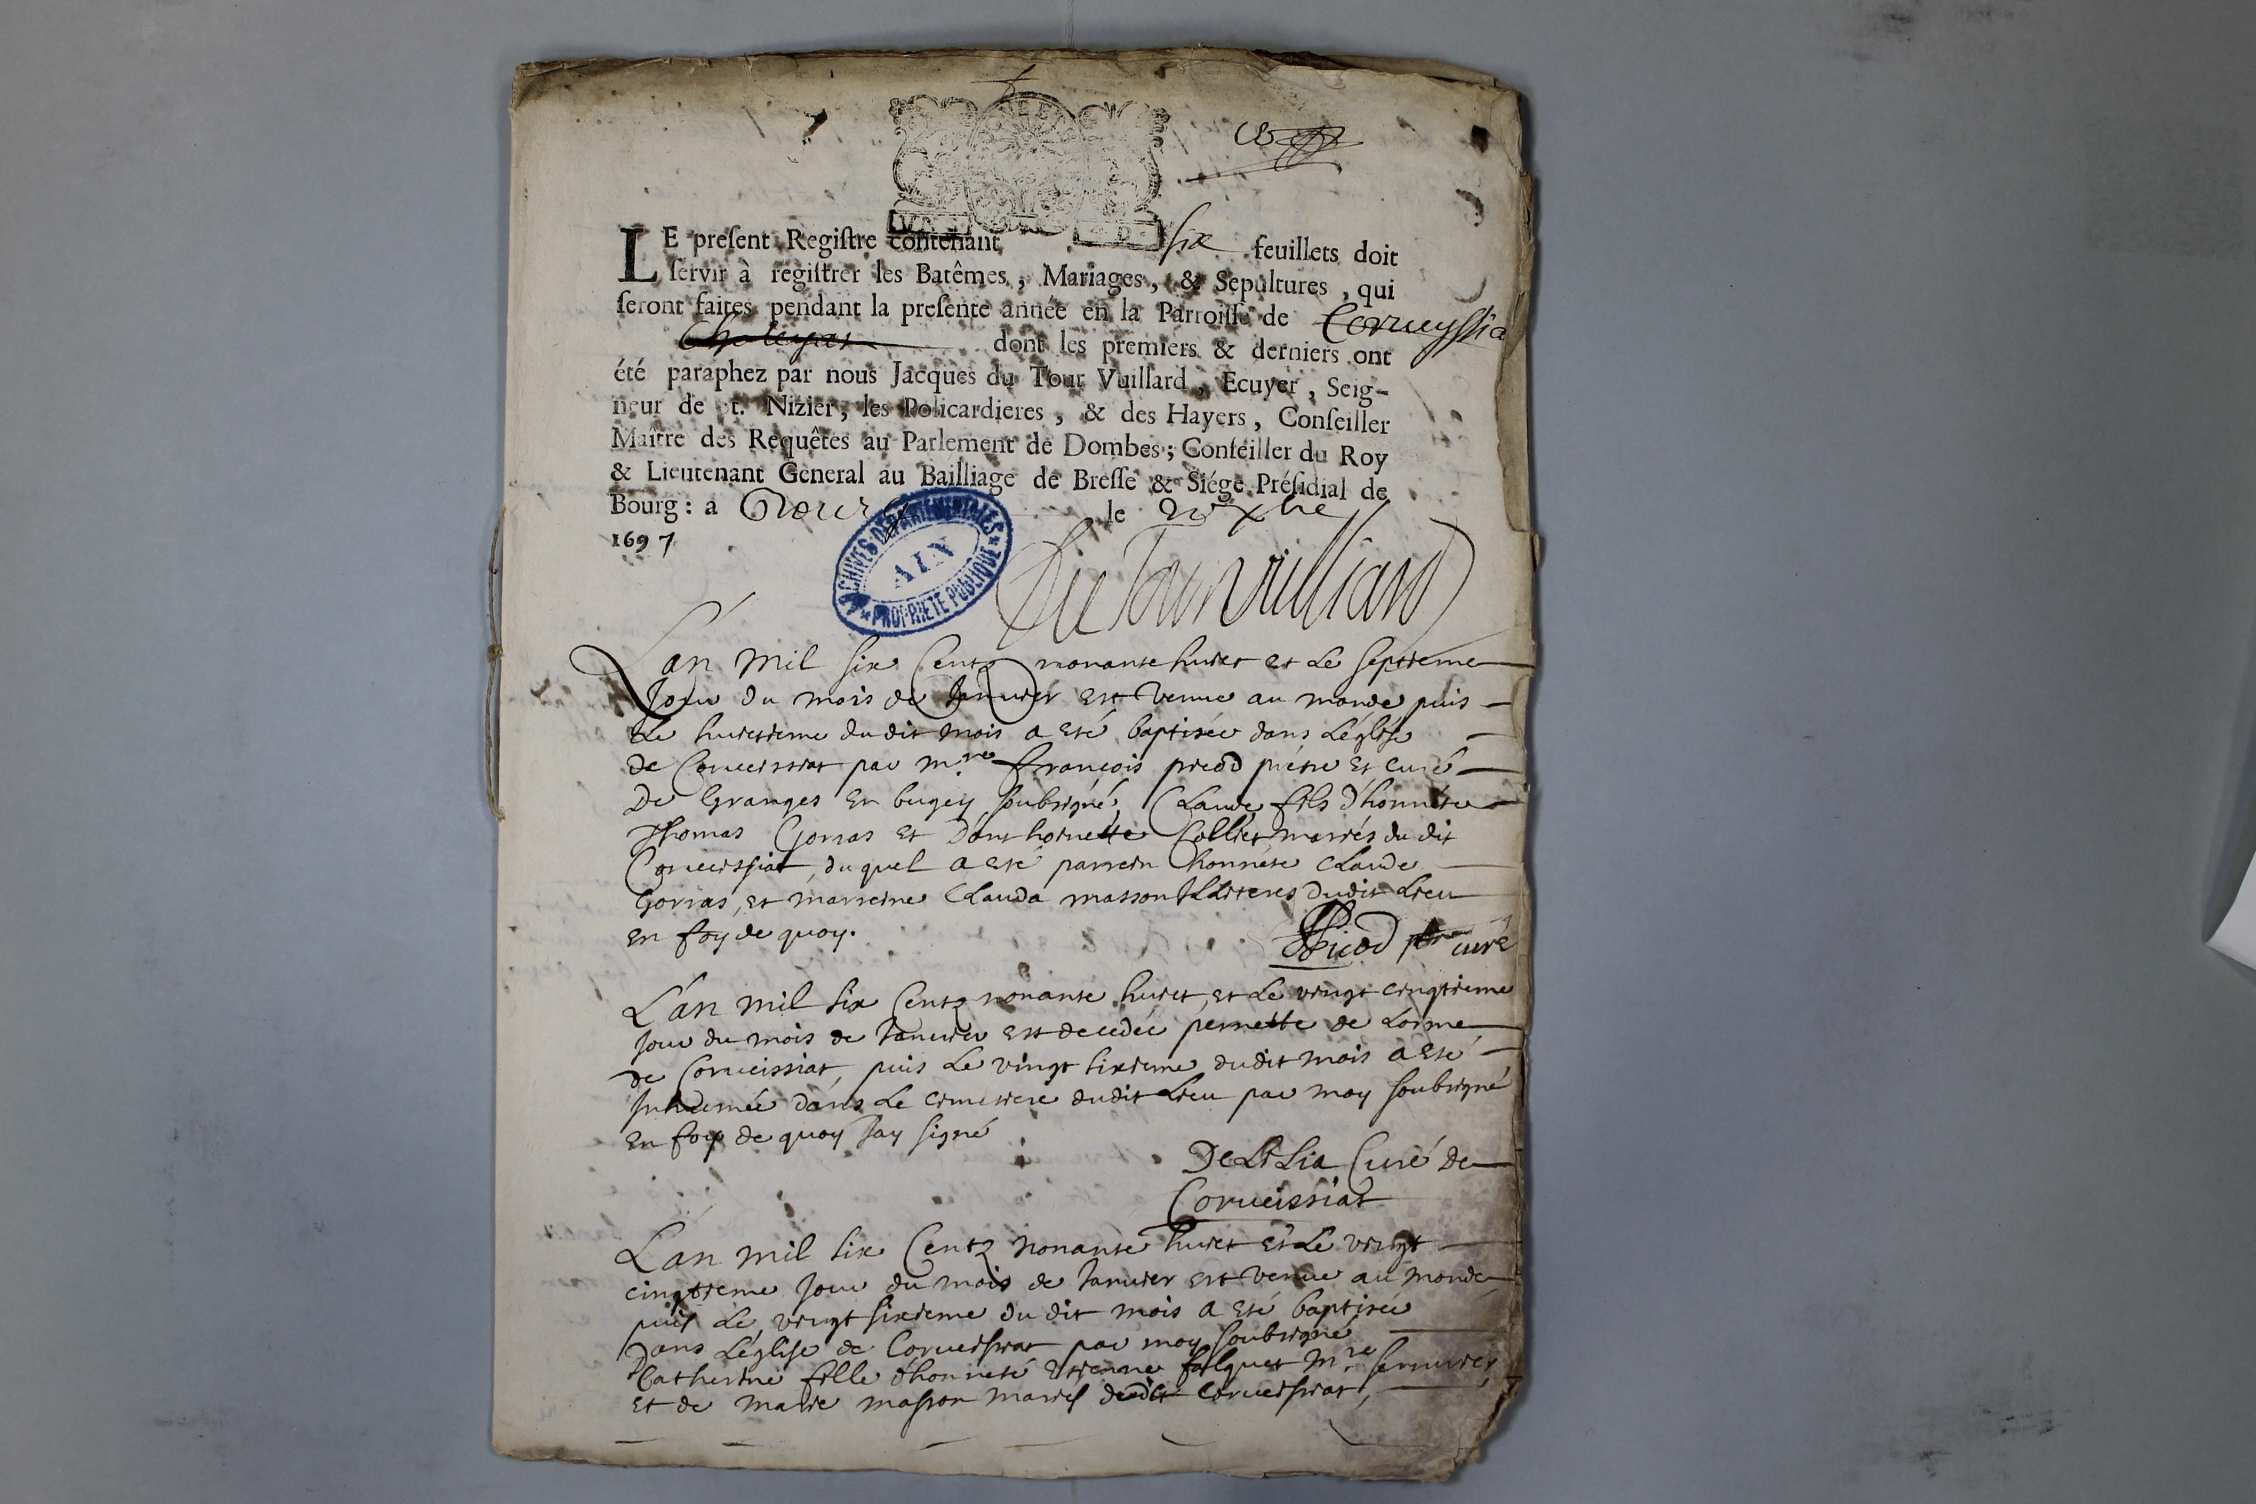 LE preſent Regiſtre contenant six feuillets doit
ſervir à regiſtrer les Batêmes, Mariages, & Sepultures, qui
ſeront faites pendant la preſente année en la Parroiſſe de Corveyssia
dont les premiers & derniers ont
été paraphez par nous Jacques du Tour Vuillard, Ecuyer, Seig-
neur de St. Nizier, les Policardieres, & des Hayers, Conſeiller
Maître des Requêtes au Parlement de Dombes; Conſeiller du Roy
& Lieutenant General au Bailliage de Breſſe & Siége Préſidial de
Bourg: a Bourg le xbre
1697
ARCHIVES DEPARTEMENTALES
AIN
PROPRIETE PUBLIQUE
Du Tour Vuilliard
L'an mil six Centz nonante huict et Le septieme
Jour du mois de Janvier est venue au monde puis
Le huictieme du dit mois a esté baptisée dans L'église
de Corveissiat par mre François picod prétre et curé
De Granges en bugey soubsigné, Claude fils d'honnéte
Thomas Gorras et D'anthoinette Collier mariés du dit
Corveissiat, du quel a esté parrein honnéte Claude
Gorras, et marreine Clauda masson Illiteres dudit Lieu
en foy de quoy.
Picod ptre curé
L'an mil six Centz nonante huict, et Le vingt cinqtieme
Jour du mois de Janvier est decedée pernette de Lorme
de Corveissiat, puis Le vingt sixieme dudit mois a esté
Inhumée dans Le cimetiere dudit Lieu par moy soubsigné
en foy de quoy Jay signé
DeLiLia Curé de
Corveissiat
L'an mil six Centz nonante huict et Le vingt
cinqtieme Jour du mois de Janvier est venue au monde
puis Le vingt sixieme du dit mois a esté baptisée
Dans L'église de Corveissiat par moy soubsigné
Catherine fille d'honneté Estienne falquet Mre serrurier,
et de marie masson mariés dudit Corveissiat,